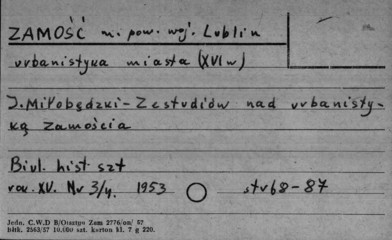 ZAMOŚĆ m. pow. woj. Lublin
urbanistyka miasta (XVI w)
J. Miłobędzki - Ze studiów nad urbanisty-
ką Zamościa
Biul. hist. szt
rov. XV. Nr 3/4. 1953 str 68-87
Jedn. C.W.D B/Olsztyn Zam 2776/on/ 57
hltk. 2563/57 10.000 szt. karton kl. 7 g 220.